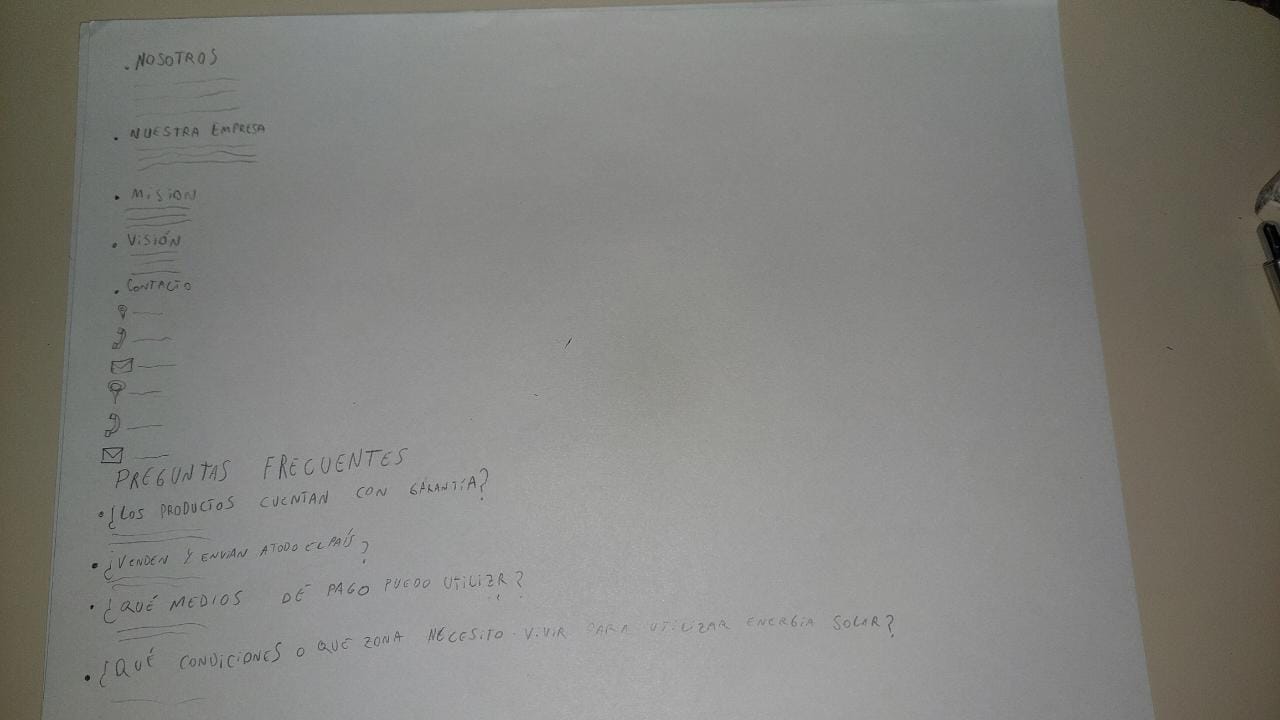 . NOSOTROS
. NUESTRA EMPRESA
. MISION
. VISIÓN
. CONTACTO
PREGUNTAS FRECUENTES
• ¿LOS PRODUCTOS CUENTAN CON GARANTÍA?
• ¿VENDEN Y ENVIAN A TODO EL PAÍS?
• ¿QUÉ MEDIOS DE PAGO PUEDO UTILIZR?
• ¿QUÉ CONDICIONES O QUE ZONA NECESITO VIVIR PARA UTILIZAR ENERGIA SOLAR?